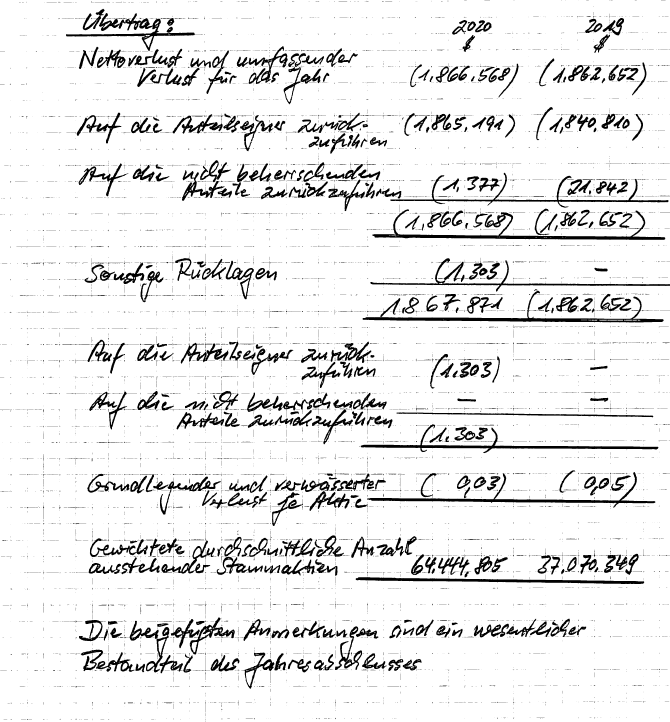 Übertrag: 2020 2019
$ $
Nettoverlust und umfassender
Verlust für das Jahr (1,866,568) (1,862,652)
Auf die Anteilseigner zurück-
zuführen (1,865,191) (1,840,810)
Auf die nicht beherrschenden
Anteile zurückzuführen (1,377) (21,842)
(1,866,568) (1,862,652)
Sonstige Rücklagen (1,303) –
1,867,871 (1,862,652)
Auf die Anteilseigner zurück-
zuführen (1,303) –
Auf die nicht beherrschenden – –
Anteile zurückzuführen
(1,303)
Grundlegender und verwässerter
Verlust je Aktie ( 0,03) ( 0,05)
Gewichtete durchschnittliche Anzahl
ausstehender Stammaktien 64,444,805 37,070,349
Die beigefügten Anmerkungen sind ein wesentlicher
Bestandteil des Jahresabschlusses